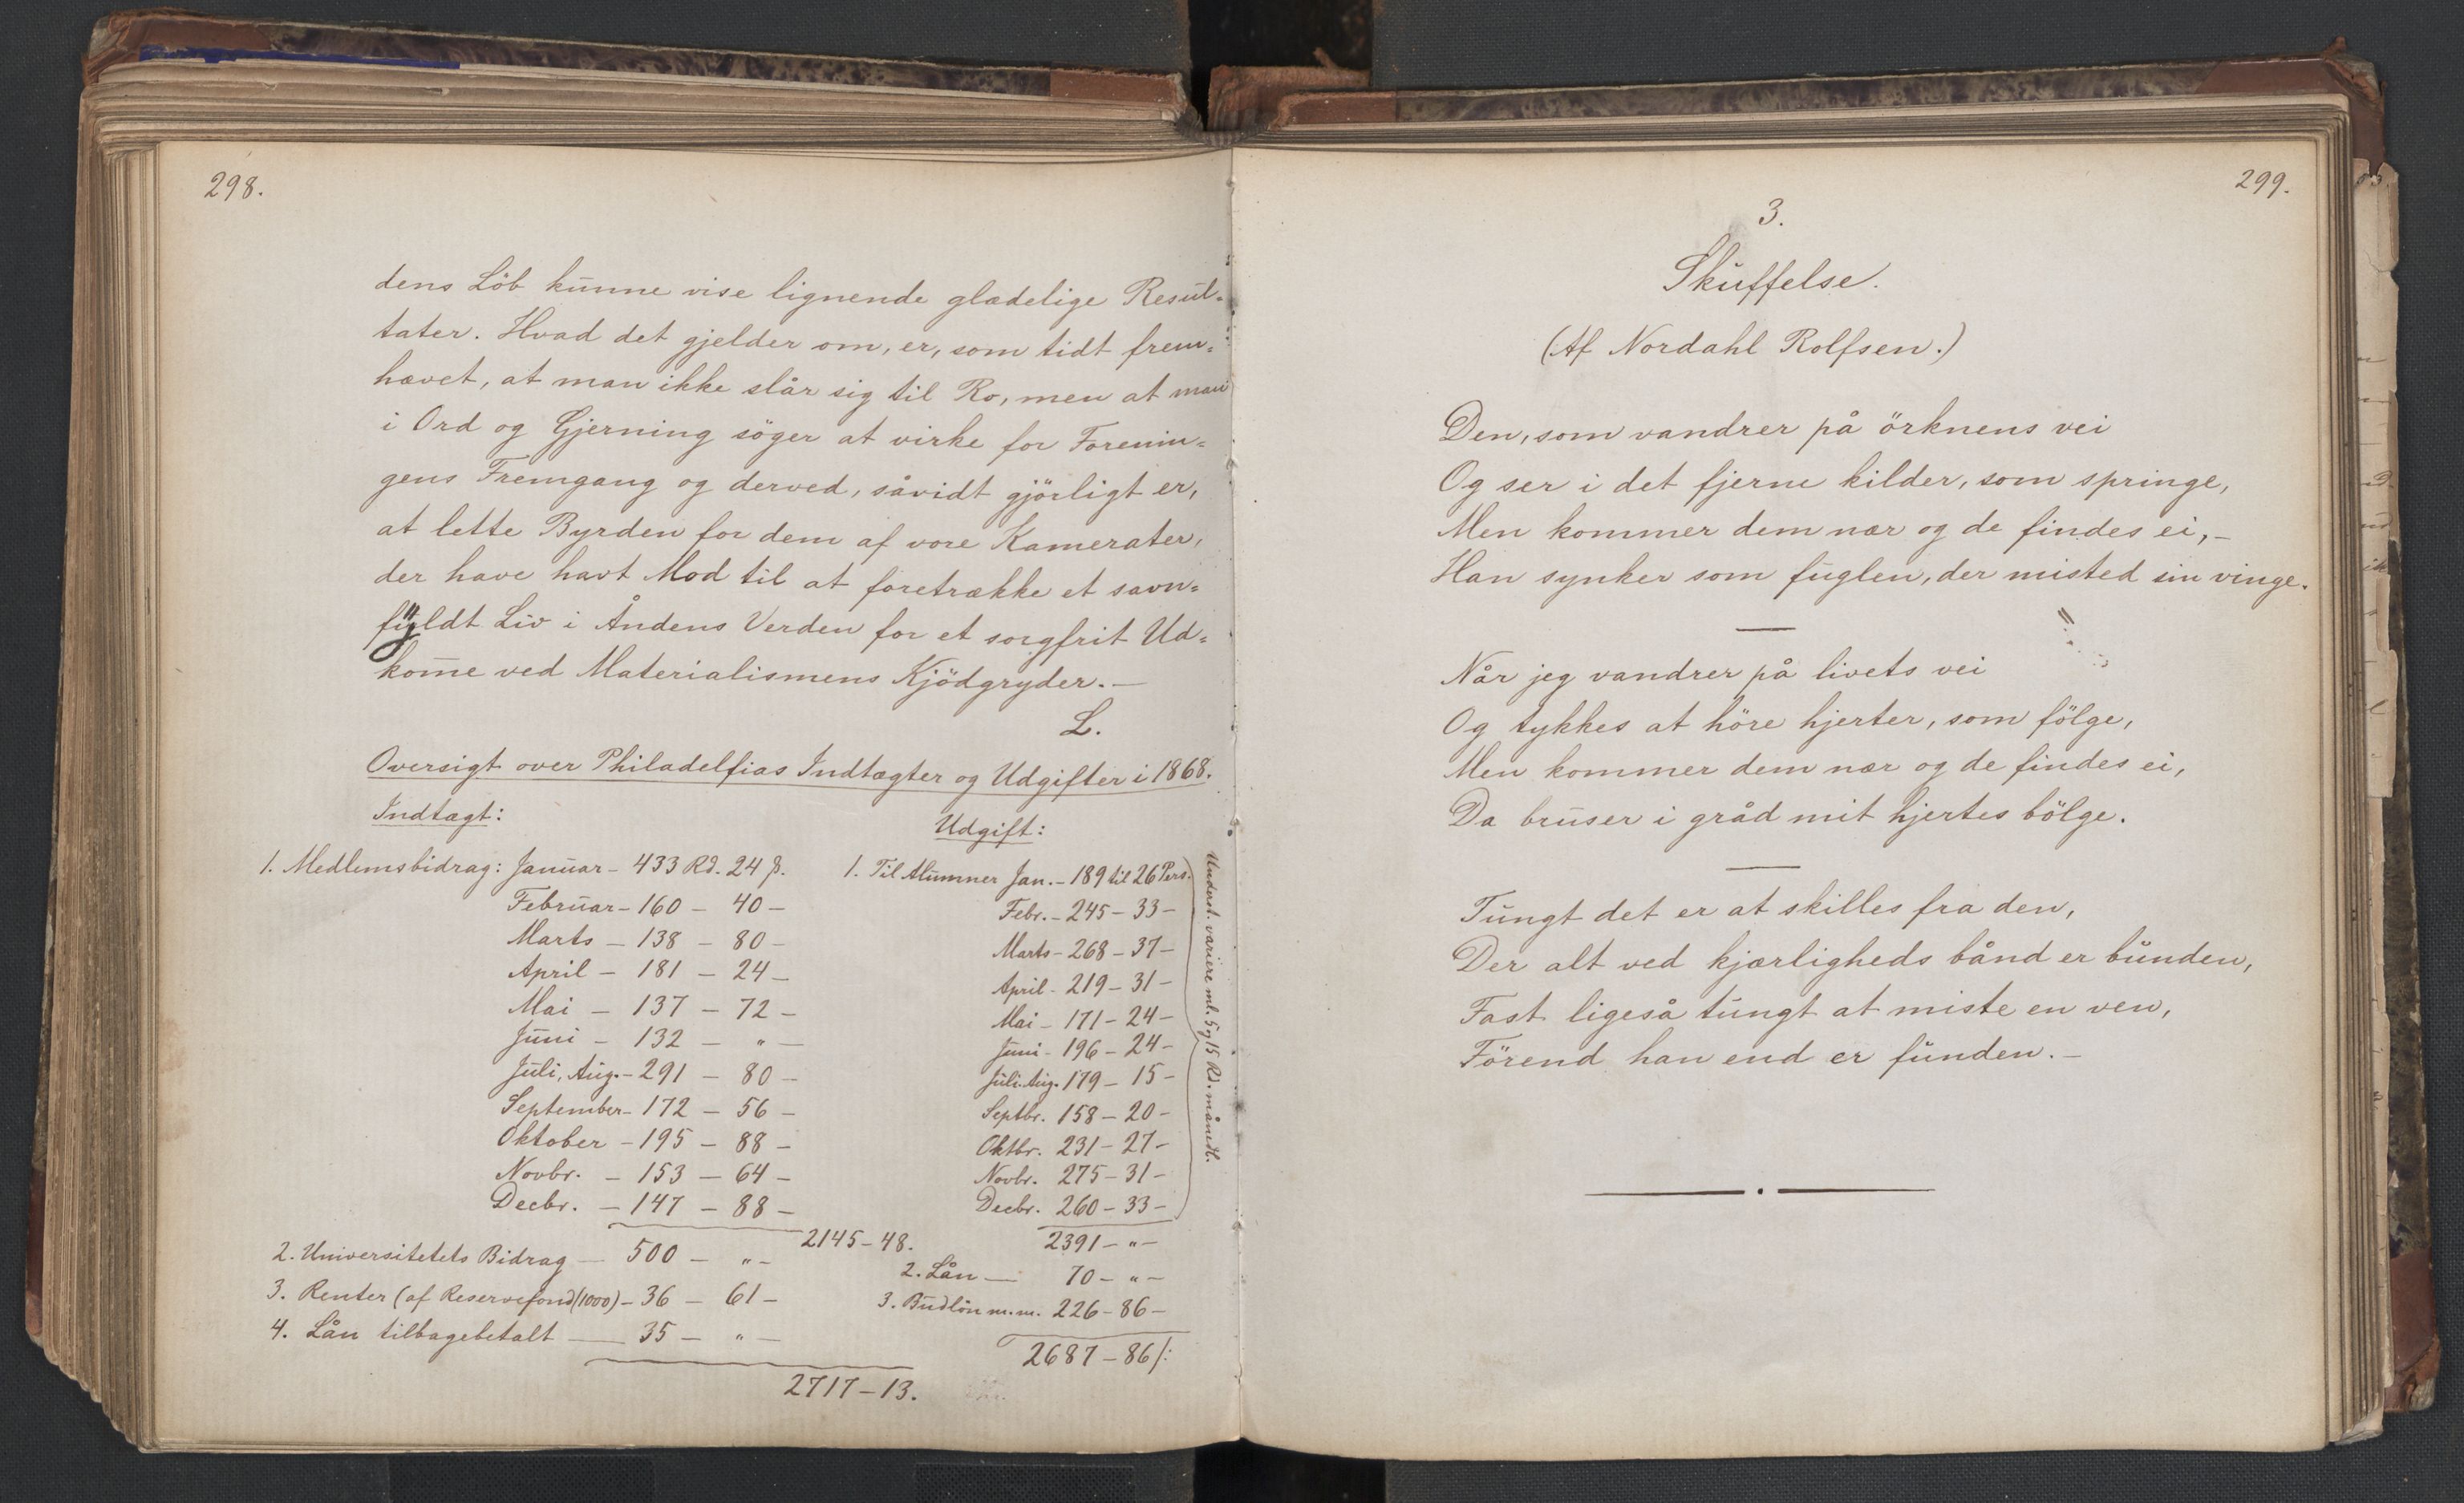 298.
dens Löb kunne vise lignende glædelige Resul-
tater. Hvad det gjelder om, er, som tidt frem-
hævet, at man ikke slår sig til Ro, men at man
i Ord og Gjerning söger at virke for Forenin-
gens Fremgang og derved, såvidt gjörligt er,
at lette Byrden for dem af vore Kamerater,
der have havt Mod til at foretrække et savn-
fyldt Liv i Åndens Verden for et sorgfrit Ud-
kom̄e ved Materialismens Kjödgryder.—
L.
Oversigt over Philadelfias Indtægter og Udgifter i 1868.
Indtægt:
1. Medlemsbidrag: Januar – 433 Rd. 24 ß.
Februar – 160 – 40 –
Marts – 138 – 80 –
April – 181 – 24 –
Mai – 137 – 72 –
Juni – 132 – „ –
Juli, Aug. – 291 – 80 –
September – 172 – 56 –
Oktober – 195 – 88 –
Novbr. – 153 – 64 –
Decbr. – 147 – 88 –
2145 – 48.
2. Universitetets Bidrag — 500 – „ –
3. Renter (af Reservefond (1000) – 36 – 61 –
4. Lån tilbagebetalt — 35 – „ –
2717 – 13.
Udgift:
1. Til Alumner Jan. – 189 til 26 Pers.
Febr. – 245 – 33 –
Marts – 268 – 37 –
April – 219 – 31 –
Mai – 171 – 24 –
Juni – 196 – 24 –
Juli. Aug. 179 – 15 –
Septbr. 158 – 20 –
Oktbr. 231 – 27 –
Novbr. 275 – 31 –
Decbr. 260 – 33 –
Underst. variere ml. 5 og 15 Rd. månedl.
2391 – „ –
2. Lån — 70 – „ –
3. Budlön m.m. 226 – 86 –
2687 – 86/:
299.
3.
Skuffelse.
(Af Nordahl Rolfsen.)
Den, som vandrer på örknens vei
Og ser i det fjerne kilder, som springe,
Men kommer dem nær og de findes ei, –
Han synker som fuglen, der misted sin vinge.
Når jeg vandrer på livets vei
Og tykkes at höre hjerter, som fölge,
Men kommer dem nær og de findes ei,
Da bruser i gråd mit hjertes bölge.
Tungt det er at skilles fra den,
Der alt ved kjærligheds bånd er bunden,
Fast ligeså tungt at miste en ven,
Förend han end er funden. –